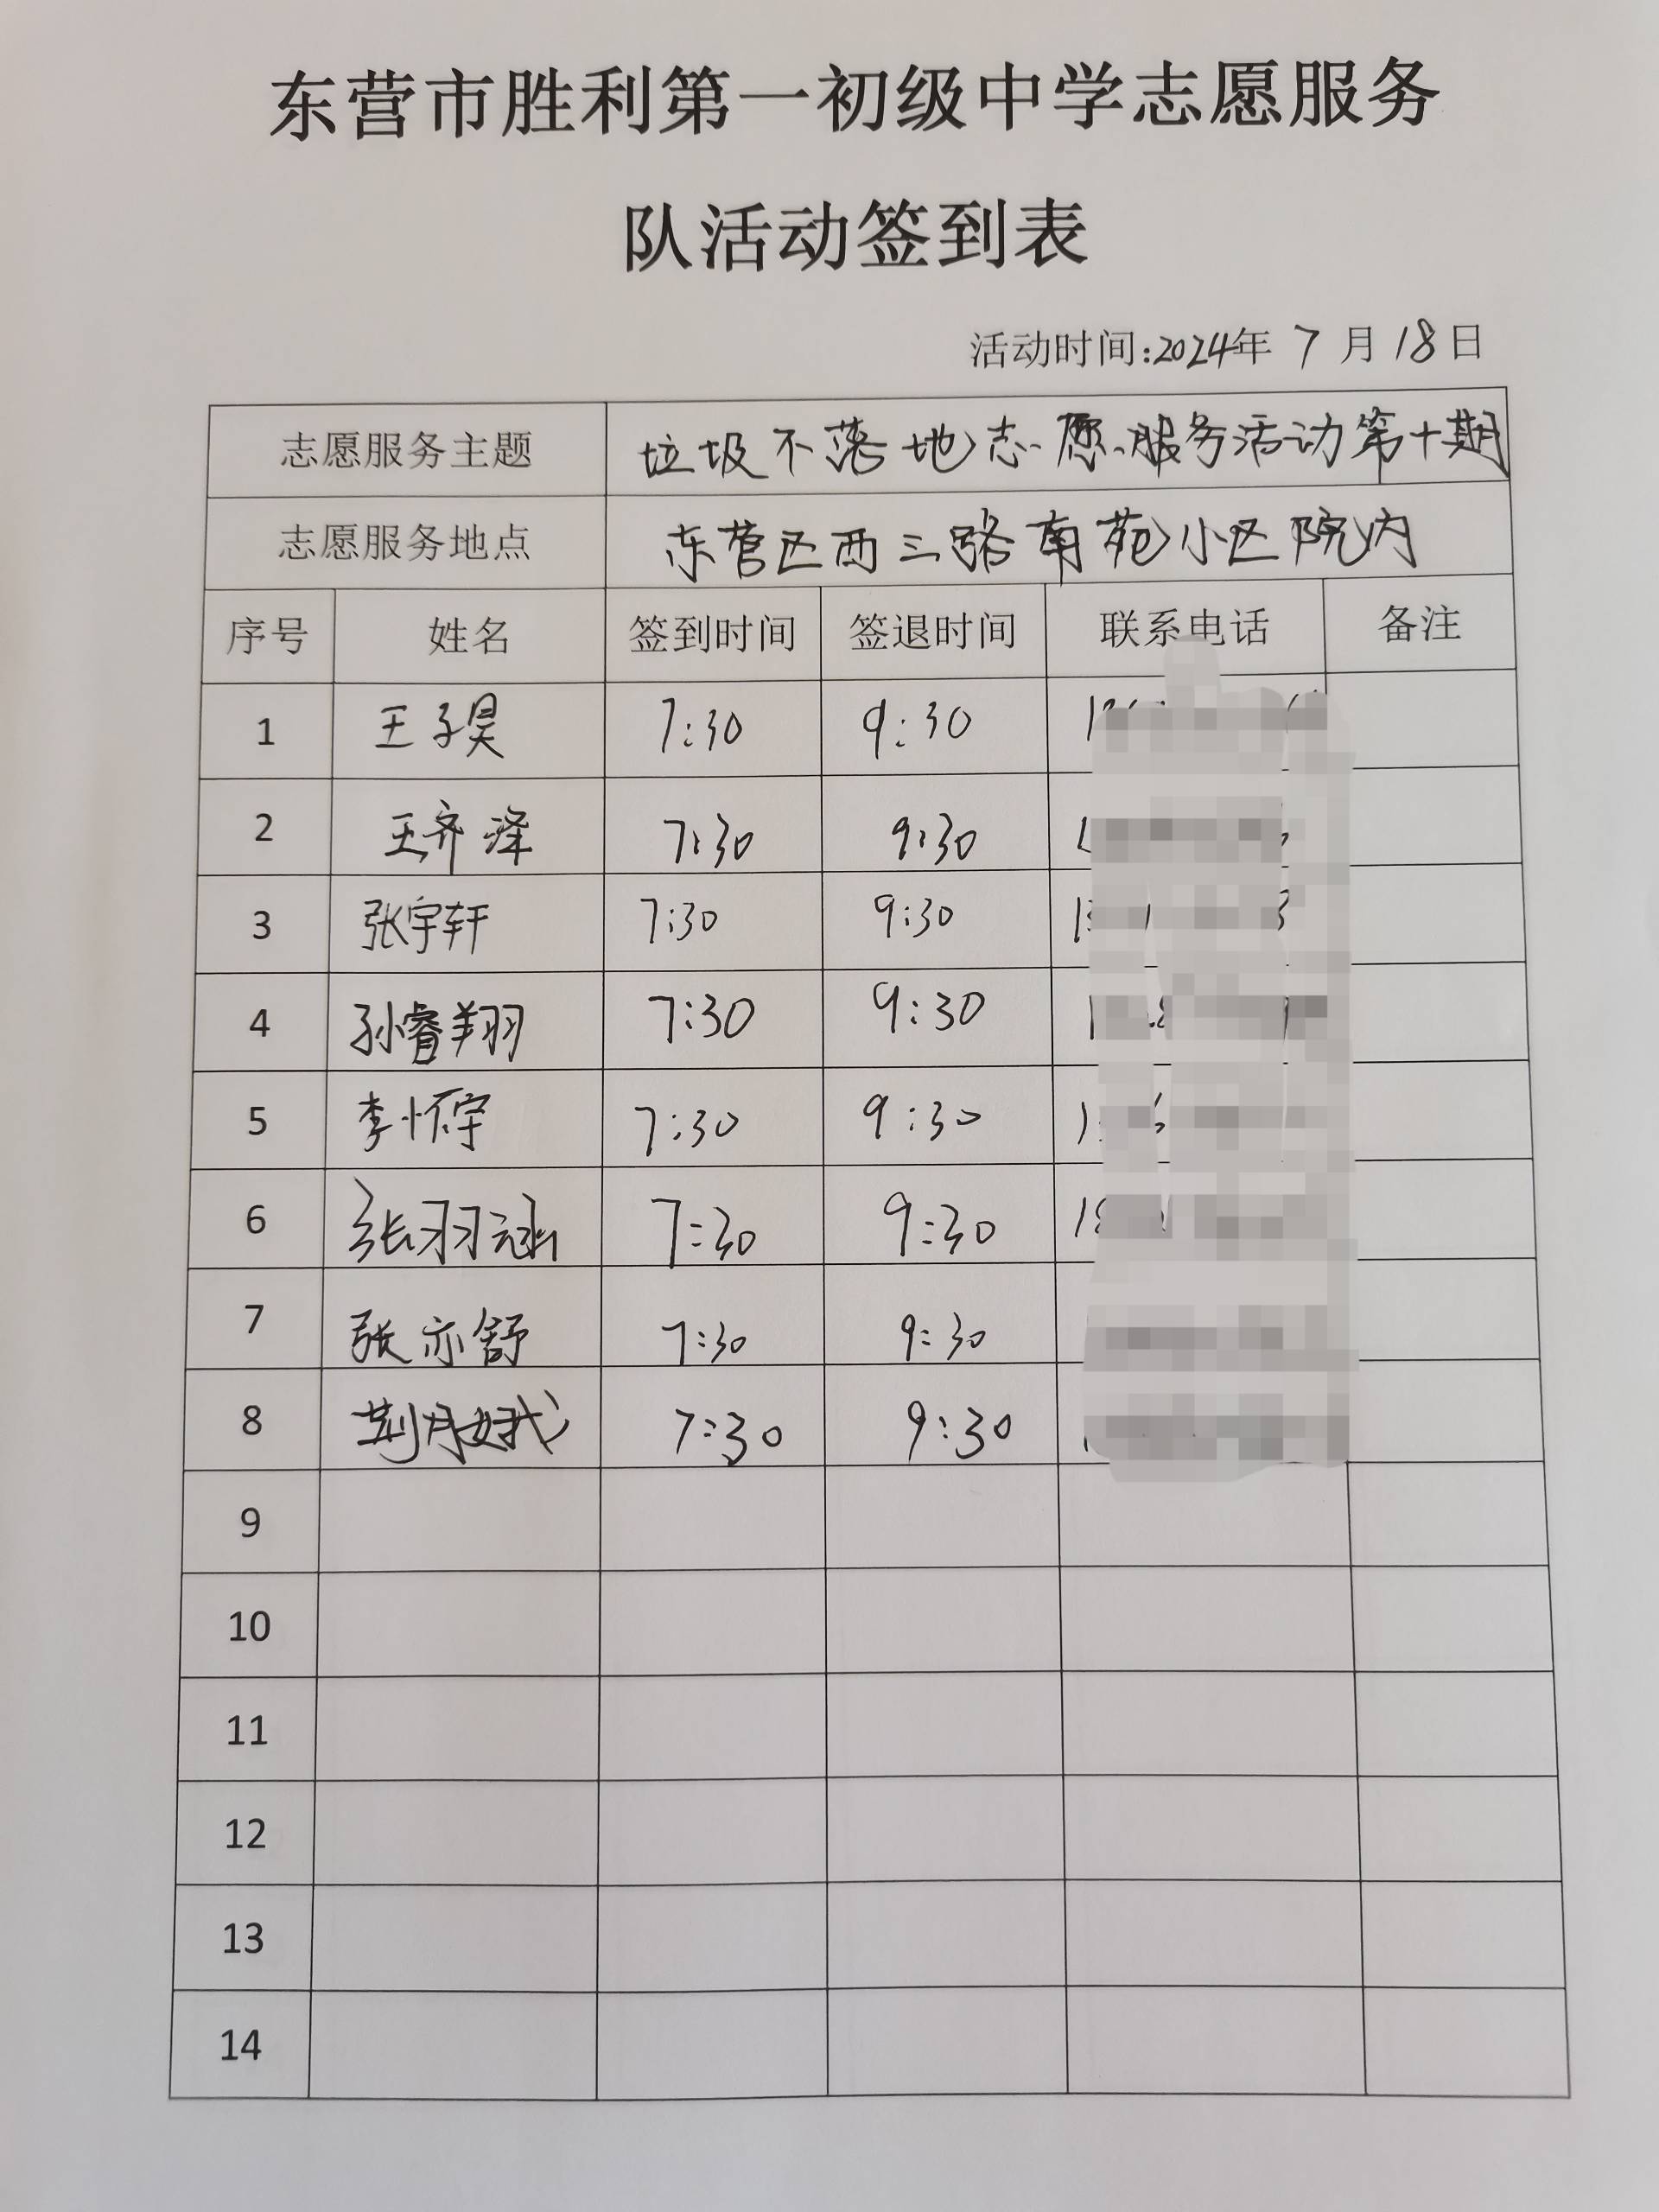 东营市胜利第一初级中学志愿服务
队活动签到表
活动时间:2024年 7 月 18 日
志愿服务主题 垃圾不落地志愿服务活动第十期
志愿服务地点 东营区西三路南苑小区院内
序号 姓名 签到时间 签退时间 联系电话 备注
1 王子昊 7:30 9:30
2 王齐泽 7:30 9:30
3 张宇轩 7:30 9:30
4 孙睿翔 7:30 9:30
5 李怀宇 7:30 9:30
6 张羽涵 7:30 9:30
7 张亦舒 7:30 9:30
8 荆月娥 7:30 9:30
9
10
11
12
13
14